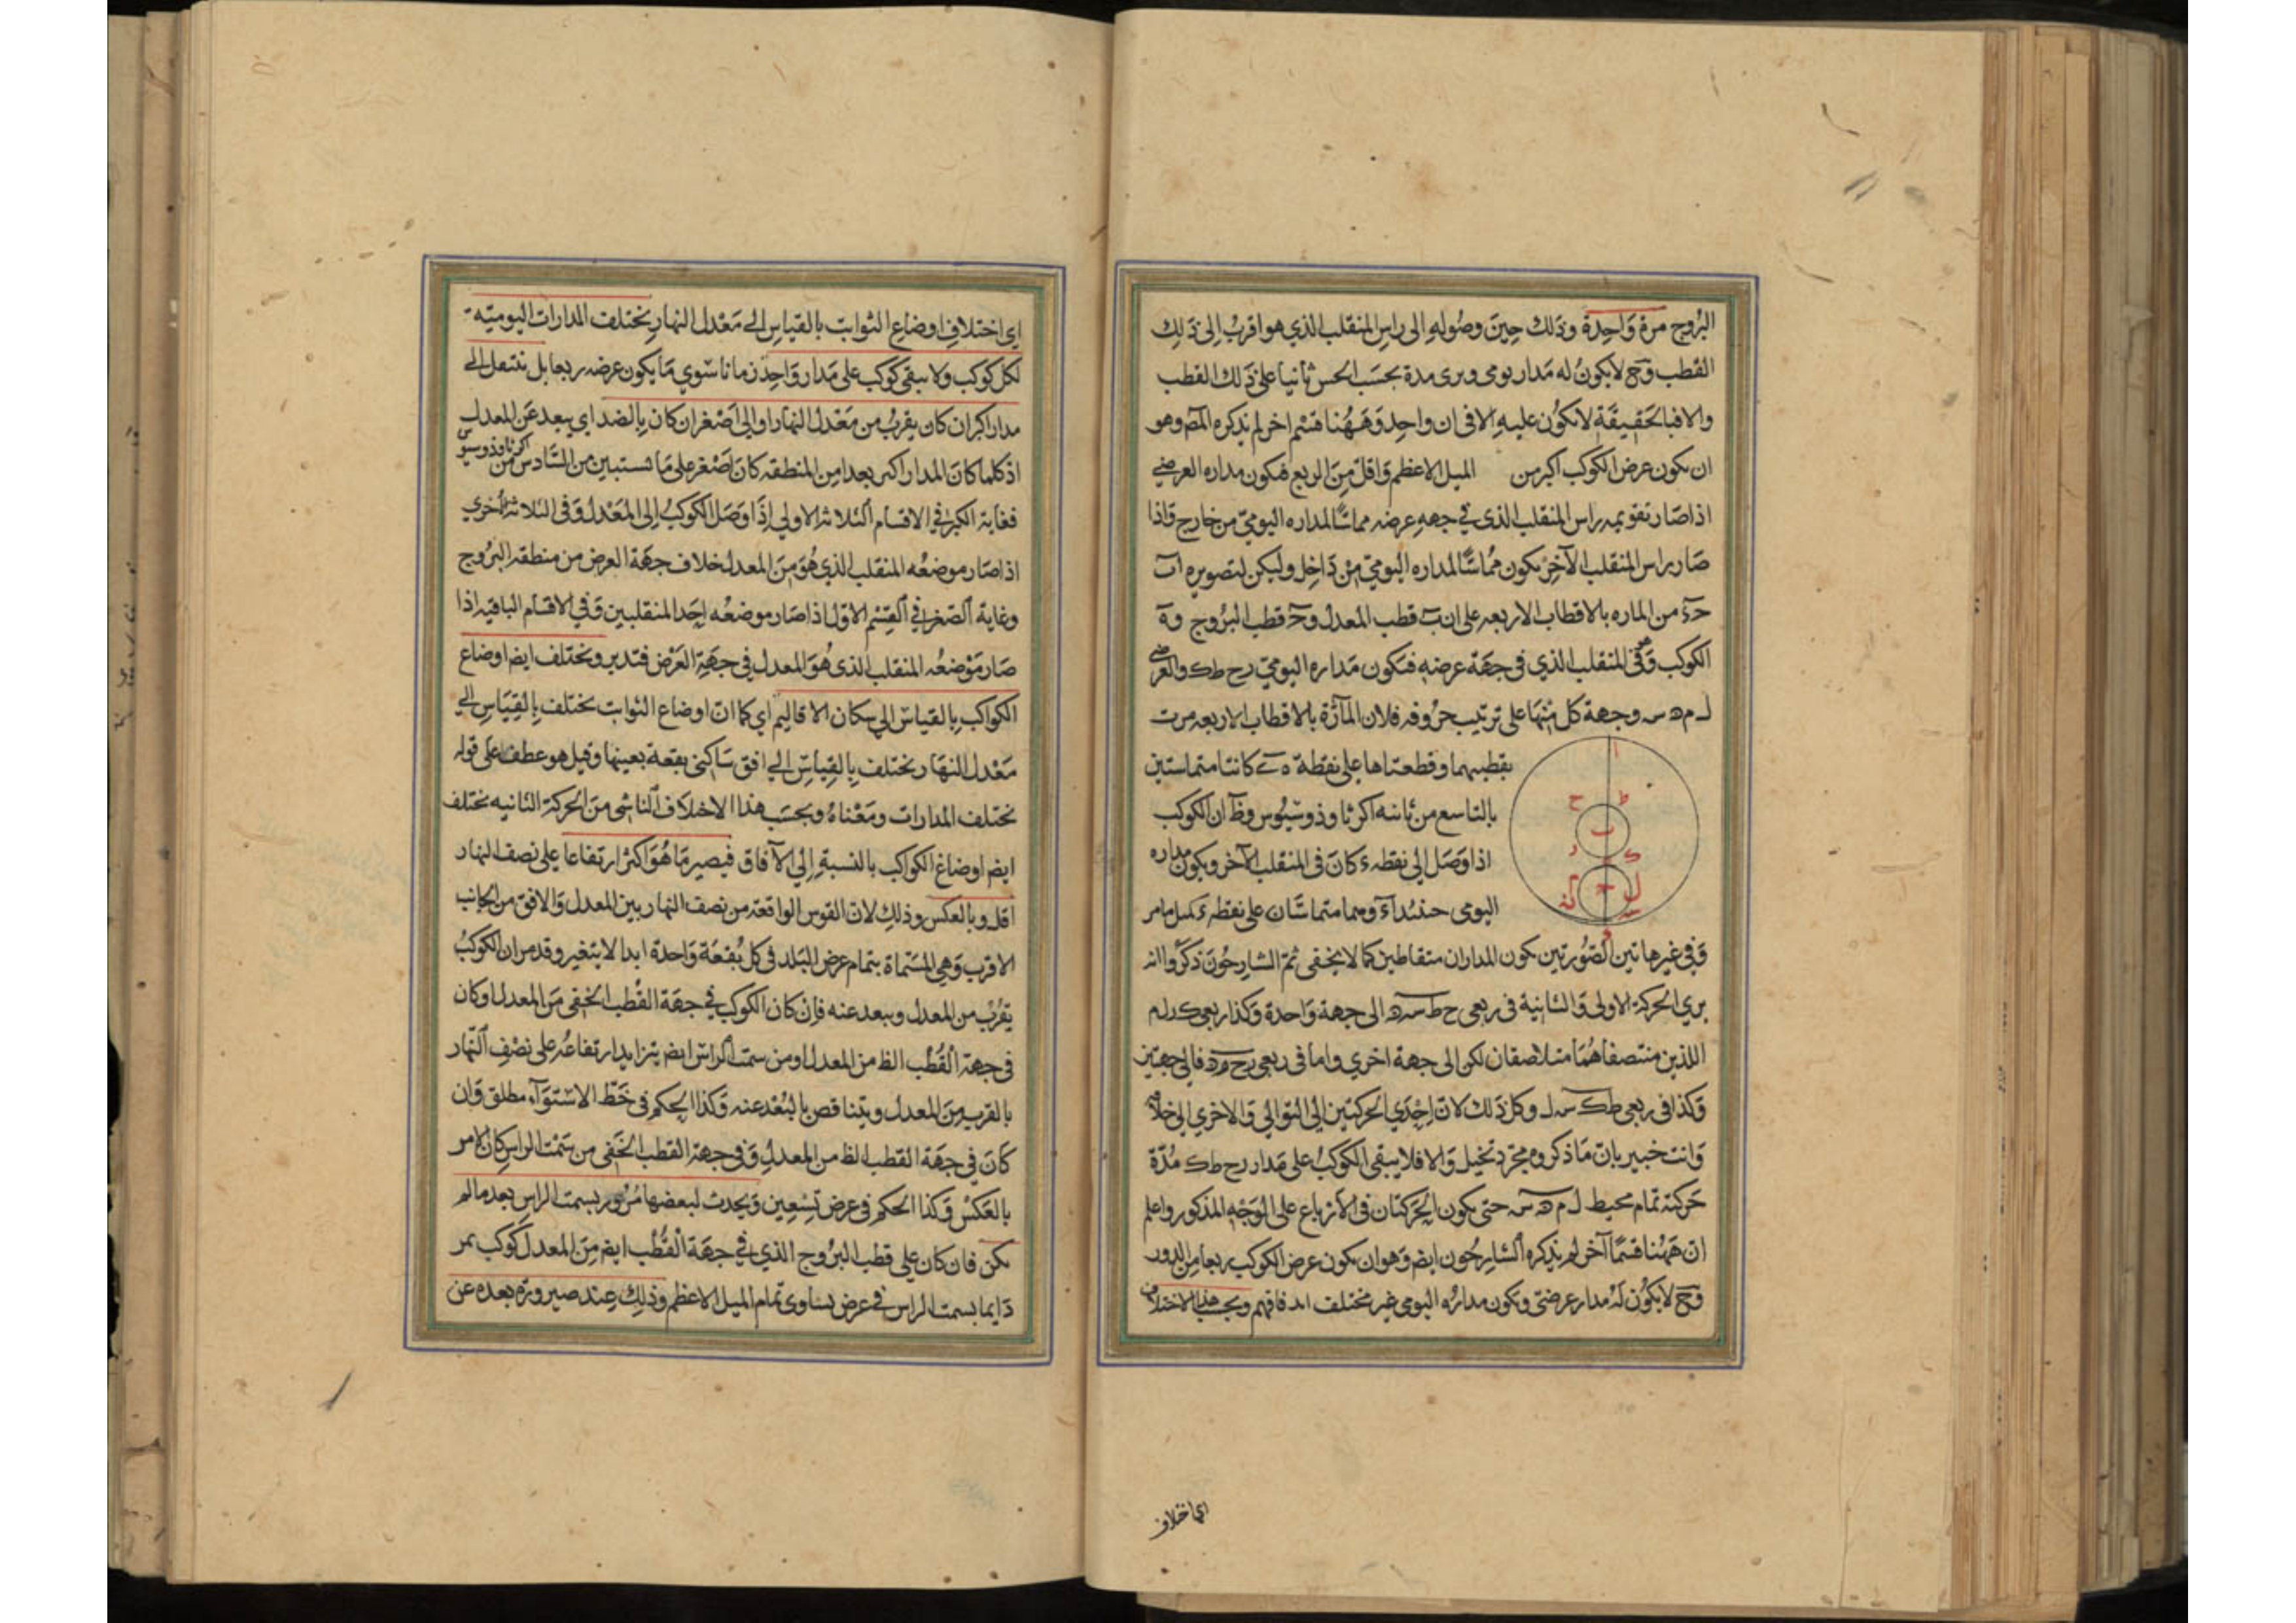 البروج مرة واحدة وذلك حين وصوله الى راس المنقلب الذي هو اقرب الى ذلك
القطب وح لا يكون له مدار يومى ويرى مدة بحسب الحس ثانيا على ذلك القطب
والا فبالحقيقة لا يكون عليه الا فى ان واحد وههنا قسم اخر لم يذكره المص وهو
ان يكون عرض الكوكب اكبر من الميل الاعظم واقل من الربع فيكون مداره العرضي
اذا صار تقويمه راس المنقلب الذى في جهه عرضه مماسًا لمداره اليومىّ من خارج واذا
صار براس المنقلب الآخر يكون مماسًا لمداره اليومىّ من داخل وليكن لتصويره اب
حء من الماره بالاقطاب الاربعه على ان ب قطب المعدل وح قطب البروج وه
الكوكب وفى المنقلب الذي فى جهة عرضه فيكون مداره اليومىّ رح طك والعرضي
ل م ه س وجهة كل منها على ترتيب حروفه فلان المارّة بالاقطاب الاربعه مرت
بقطبيهما وقطعتاها على نقطة ه كانتا متماستين
بالتاسع من ثانيه اكر ثاوذوسيوس وظ ان الكوكب
اذا وصل الى نقطه ء كان فى المنقلب الآخر ويكون مداره
اليومى حينئذ اء وهما متماسّان على نقطه ء كمل ما مر
وفى غير هاتين الصورتين يكون المداران متقاطين كما لا يخفى ثم الشارحون ذكروا انه
يري الحركة الاولى والثانية فى ربعى ح ط سه الى جهة واحدة وكذا ربعى ك ر ل م
اللذين منتصفاهما متلاصقان لكن الى جهة اخري واما فى ربعى رح م ه فالى جهتين
وكذا فى ربعى طك س ل وكل ذلك لان احدي الحركتين الى التوالي والاخري الى خلافه
وانت خبير بان ما ذكروه مجرد تخيل والا فلا يبقى الكوكب على مدار رح طك مدّة
حركته تمام محيط ل م ه س حتى يكون الحركتان فى الارباع على الوجه المذكور واعلم
ان ههنا قسمًا آخر لم يذكره الشارحون ايضا وهو ان يكون عرض الكوكب ربعا من الدور
وح لا يكون له مدار عرضىّ ويكون مداره اليومى غير مختلف ابدا فافهم وبحسب هذا الاختلاف
اى اختلاف
ا
ط
ح
ب
ر
ك
ح
م
ل
اي اختلاف اوضاع الثوابت بالقياس الے معدل النهار يختلف المدارات اليوميّه
لكل كوكب ولا يبقى كوكب على مدار واحد زمانا سوي ما يكون عرضه ربعا بل ينتقل الے
مدار اكبر ان كان يقرب من معدل النهار او الى اصغر ان كان بالضد اي يبعد عن المعدل
اذ كلما كان المدار اكبر بعدا من المنطقه كان اصغر على ما تستبين من السادس من اكر ثاوذوسيوس
فغاية الكبر في الاقسام الثلاثة الاولى اذا وصل الكوكب الى المعدل وفى الثلاثة الاخري
اذا صار موضعه المنقلب الذي هو من المعدل خلاف جهة العرض من منطقه البروج
وغاية الصغر في القسم الاول اذا صار موضعه احد المنقلبين وفى الاقسام الباقيه اذا
صار موضعه المنقلب الذى هو المعدل فى جهة العرض فتدبر ويختلف ايضا اوضاع
الكواكب بالقياس الى سكان الاقاليم اي كما ان اوضاع الثوابت يختلف بالقياس الي
معدل النهار يختلف بالقياس الے افق ساكنى بقعة بعينها وقيل هو عطف على قوله
يختلف المدارات ومعناه وبحسب هذا الاختلاف الناشى من الحركة الثانيه يختلف
ايضا اوضاع الكواكب بالنسبة الى الآفاق فيصير ما هو اكثر ارتفاعا على نصف النهار
اقل وبالعكس وذلك لان القوس الواقعة من نصف النهار بين المعدل والافق من الجانب
الاقرب وهي المسماة بتمام عرض البلد فى كل بقعة واحدة ابدا لا يتغير وقد مر ان الكوكب
يقرب من المعدل ويبعد عنه فان كان الكوكب في جهة القطب الخفى من المعدل او كان
فى جهة القطب الظ من المعدل ومن سمت الراس ايضا يتزايد ارتفاعه على نصف النهار
بالقرب من المعدل ويتناقص بالبعد عنه وكذا الحكم فى خط الاستواء مطلق وان
كان فى جهة القطب الظ من المعدل وفى جهة القطب الخفى من سمت الراس كان الامر
بالعكس وكذا الحكم فى عرض تسعين ويحدث لبعضها مرور بسمت الراس بعد ما لم
يكن فان كان على قطب البروج الذي في جهة القطب ايضا من المعدل كوكب يمر
دايما بسمت الراس في عرض يساوى تمام الميل الاعظم وذلك عند صيرورة بعده عن